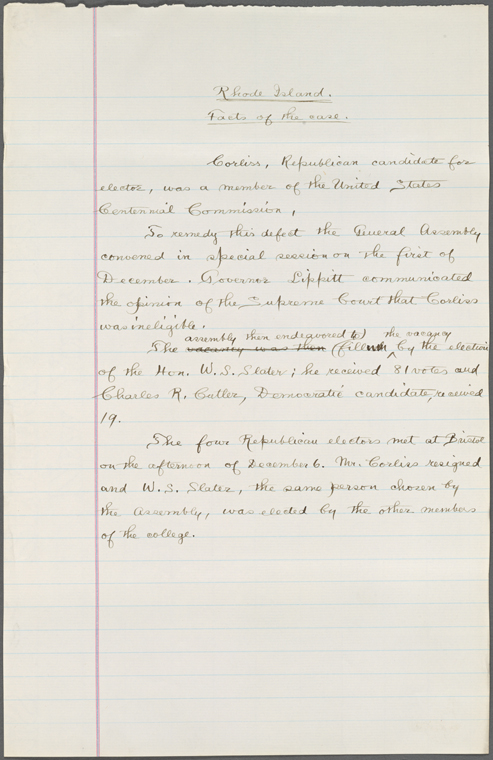 Rhode Island.
Facts of the case.
Corliss, Republican candidate for
elector, was a member of the United States
Centennial Commission,
To remedy this defect the General Assembly
convened in special session on the first of
December. Governor Lippitt communicated
the opinion of the Supreme Court that Corliss
was ineligible.
assembly then endeavored to) the vacancy
The vacancy was then (fill by the election
of the Hon. W. S. Slater; he received 81 votes and
Charles R. Cutler, Democratic candidate, received
19.
The four Republican electors met at Bristol
on the afternoon of December 6. Mr. Corliss resigned
and W. S. Slater, the same person chosen by
the Assembly, was elected by the other members
of the college.